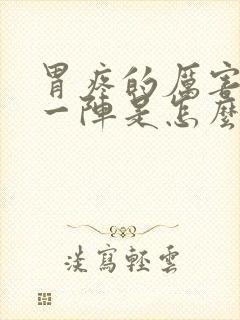 胃疼的厲害
一陣是怎麼
淡寫輕雲